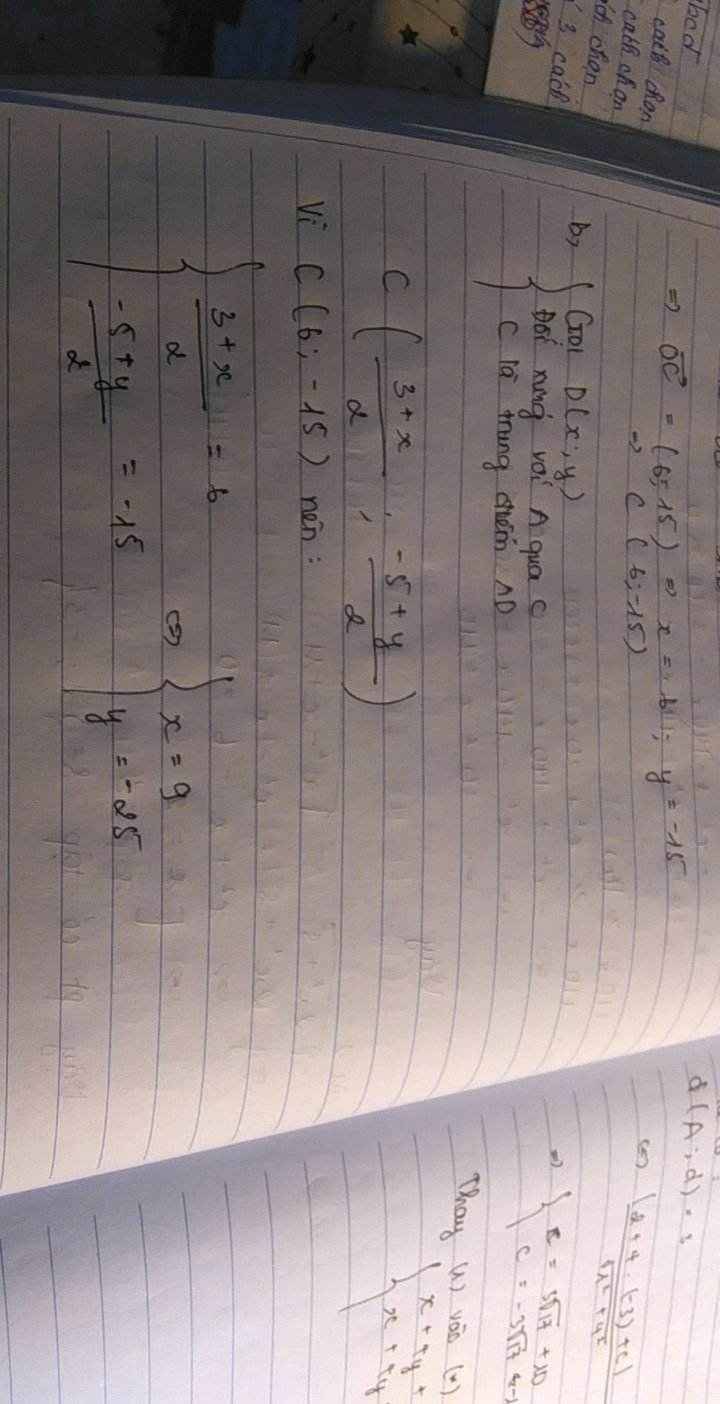 abcd
cách chọn
cách chọn
chọn
3 cách
=> OC = (6;-15) => x = 6; y = -15
=> C (6;-15)
b, { Gọi D(x;y)
Đối xứng với A qua C
C là trung điểm AD
C ( 3+x / 2 , -5+y / 2 )
Vì C (6;-15) nên:
{ 3+x / 2 = 6 <=> { x = 9
-5+y / 2 = -15 y = -25
d(A;d) = 3
=> { c = 3√17 + 10
Thay (1) vào (*)
{ x + 4y +
x + 4y